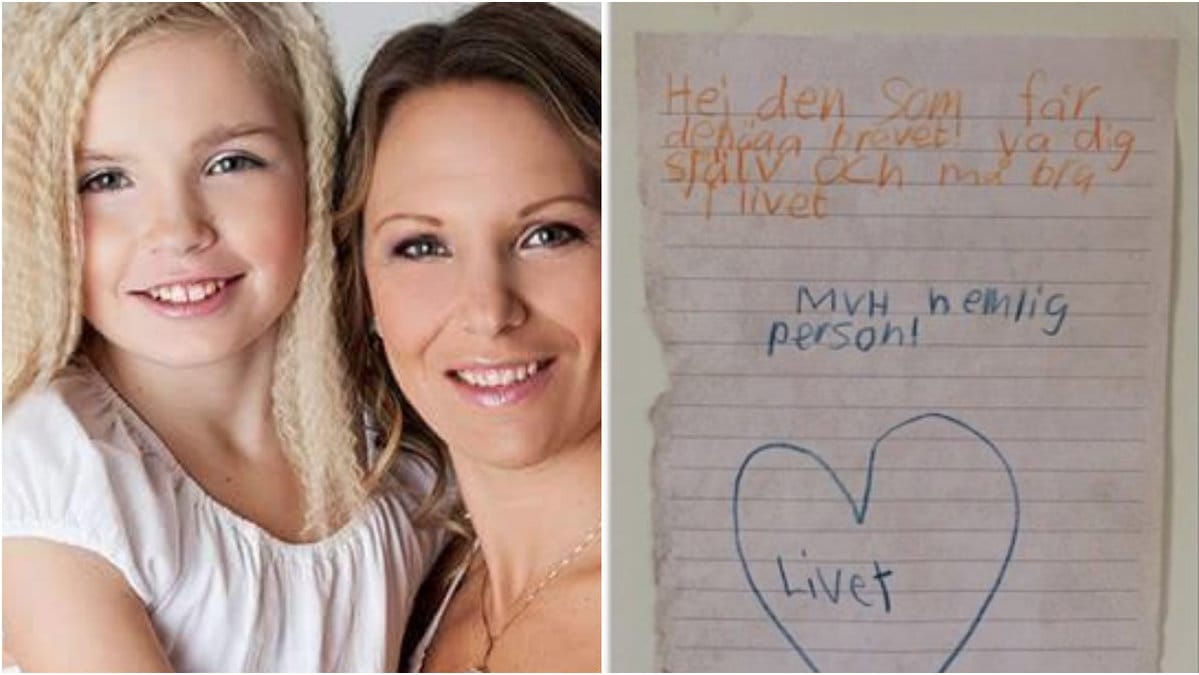 Hej den som får
denjaa brevet! va dig
själv och må bra
i livet
MVH hemlig
person!
Livet